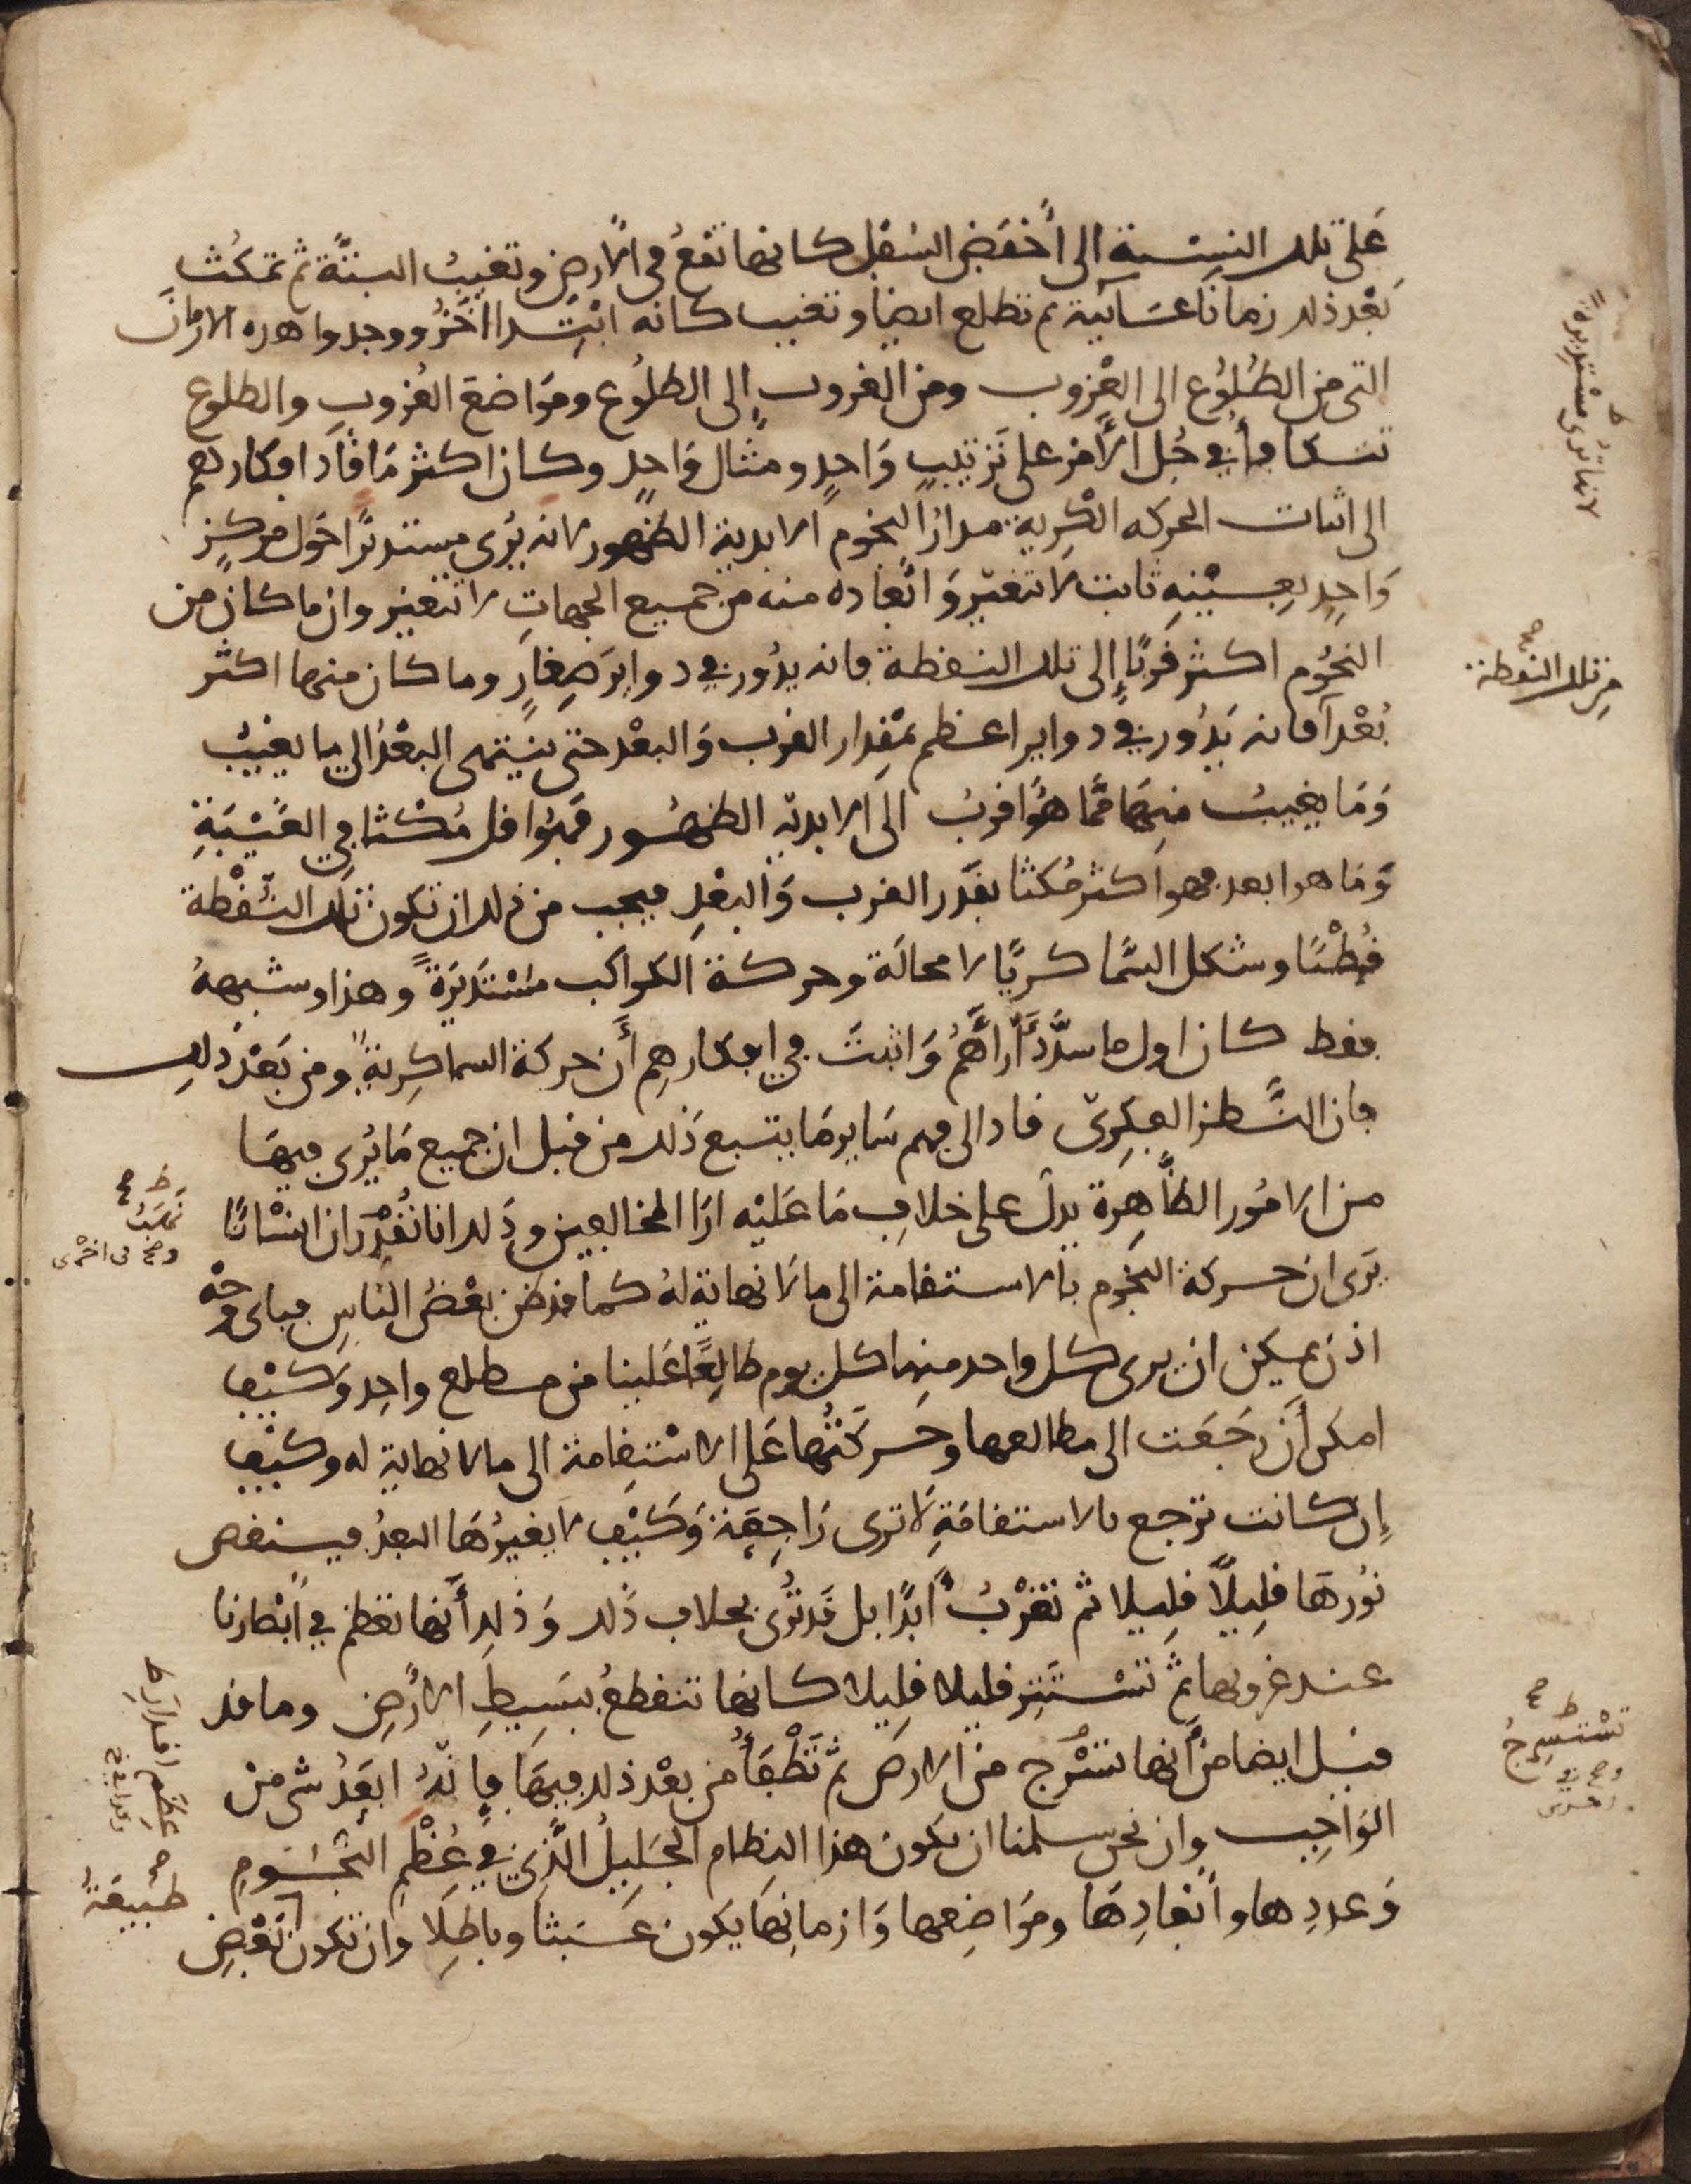 على تلك النسبة الى أخفض السفل كانها تقع في الأرض وتغيب البتّة ثم تمكث
بَعْد ذلك زمانا ثم تطلع ايضا وتغيب كانه ابتدا آخر ووجدوا هذه الازمان
التي من الطُلُوع الى الغُروب ومن الغروب إلى الطلُوع ومَوَاضعَ الغُروبِ والطلوع
تتكافأ في جُل الأمر على تَرتيبٍ وَاحِدٍ ومثال وَاحِدٍ وكان اكثر مَا قاد افكارهم
الى اثبات الحركه الكُرِية مدارُ النجوم الابدية الظهور لانه يُرَى مستديرًا حَول مركزٍ
وَاحِدٍ بعِيْنِهِ ثابت لا تتغيّر وَابْعاده منه من جميع الجهاتِ لا تتغير وان ما كان من
النجُوم اكثر قربًا إلى تلك النقطة فانه يدُور في دوايرَ صِغارٍ وما كان منها اكثر
بُعْدًا فانه يَدُور في دواير اعظم بمْقِدار القرب وَالبعْد حتى يَنتهى البعْدُ الى ما يغيبُ
وَمَا يغيبُ منهَا ممَّا هُوَ اقربُ الى الابديّه الظهُور فهُوَ اقل مُكْثا في الغَيْبَةِ
وَمَا هو ابعد فهو اكثر مُكثا بقَدر القرب وَالبعْدِ فيجب من ذلك ان تكون تلك النُقْطة
قُطْبًا وشكل السَّما كريًا لا محالَة وحركة الكواكب مُسْتَدِيرَةً وهذا وشبههُ
فقط كان اول ما سدَّد آرَآهُم وَاثبتَ في افكارهِم أن حركة السما كرِيةً ومن بَعْد ذلِك
فان النَّظر الفِكِرىّ قاد الى فهم سَاير مَا يتبع ذَلك من قبل ان جميع مَا يُرى فيهَا
من الامُور الظّاهِرة يدلّ على خلافِ مَا عَلَيْه ارَا المخالفين وذَلك انا نُقدِّر ان انسْانًا
يَرَى ان حركة النجُوم بالاستقامة الى ما لا نهاية لهُ كما قد ظن بعْضُ الناسِ فباى وجْه
اذن يمكن ان يرى كل واحد منها كل يوم طالِعًا عَلينا من مطلع واحِد وَكيْف
امكن أن رجَعَت الى مطالعها وحركَتُها عَلى الاسْتِقامة الى ما لا نهاية له وكيْف
إن كانت ترجع بالاستقامَةِ لَا ترى رَاجِعَة وَكيْف لا يغيرُهَا البعدُ فينقص
نُورهَا قلِيلًا قليلا ثم تَقرْبُ أبَدًا بل قد تُرَى بخلاف ذَلك وَذلك أنها تعظم في ابْصَارنا
عند غروبها ثم تسْتَتِر قليلا قليلا كانها تنقطعُ ببَسِيطِ الأرْضِ وما قد
قيل ايضا من أنها تسْرُج من الارض ثم تَطْفَأُ من بعْد ذلك فيهَا فإنّهُ ابعَدُ شى من
الوَاجِب وان نحن سلمنا ان يكون هذا النِظام الجَليل الَّذي في عُظْم النجُومِ
وَعددِها وأبْعادِهَا ومَواضِعها وَازمانِهَا يَكون عَبَثا وباطِلَا وان تكون بَعْضُ
لانها تُرى مُسْتَدِيرةً
من تلك النقطة
نحسَبُ
وصح في اخرى
تسْتَسرِجُ
وصح في
عِظم اقدارٍ
طبيعَةُ